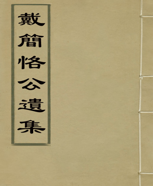 戴簡恪公遺集